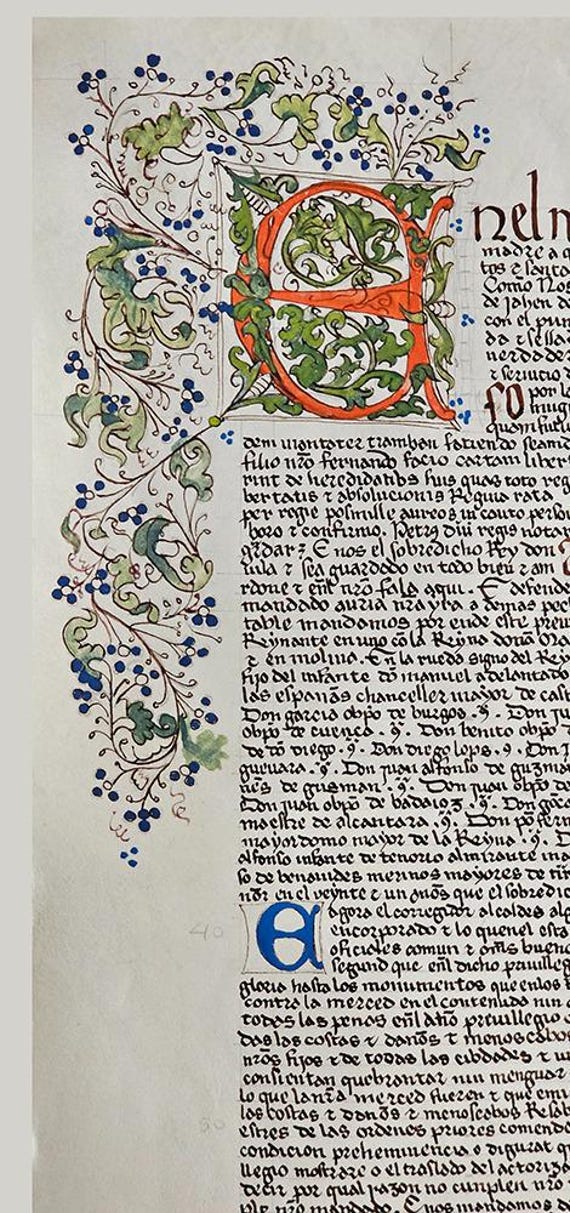 E nel m
madre a q
tos τ santa
Como Nos
de Jahen de
con el pun
da τ sella
uerdader
τ seruicio d
fo por le
dem uiantater framban fatiendo seand
filio nr̃o fernando facio cartam liber
rint de heredidatibs suis quas toto reg
bertatis τ absolucionis Reguia rata
per rogie posmille aureos in cauto person
boro τ confirmo. Petrꝰ diui regis notar
E nos el sobredicho Rey don
uala τ sea guardado en todo bien τ am
rdone τ enl nr̃o fala aqui. E defende
mandado auria nr̃a yra a demas pech
table mandamos por ende este preui
Reynante en uno cō la Reyna donā Ma
τ en molina. En la rueda signo del Rey
fijo del infante dō manuel adelantado
las españas chanceller mayor de cast
Don garcia obpō de burgos .9. Don Ju
obpō de cuenca .9. Don benito obpō d
de dō diego .9. Don diego lops .9. Don J
gueuara .9. Don Juan alfonso de guzma
nes de gusman .9. Don Juan obpō de
Don Juan obpō de badaioz .9. Don garc
maestre de alcantara .9. Don pō fern
mayordomo mayor de la Reyna .9. D
alfonso infante de tenorio almirante ma
so de benauides merinos mayores de
en el veynte τ un años que el sobredic
E agora el corregidor alcaldes alg
encorporado τ lo quenel esta
oficiales comun τ om̄s bueno
segund que enl dicho preuilleg
gloria hasta los monumentos que en los
contra la merced en el contenida nin
todas las penas enl dicho preuillegio
das las costas τ daños τ menoscabos
nr̃os fijos τ de todas las cibdades τ ui
consientan quebrantar nin menguar
lo que la nr̃a merced fueren τ que emi
las costas τ daños τ menoscabos Resab
estres de las ordenes priores comend
condicion preheminencia o dignitat q
llegio mostrare o el traslado del actoriza
decir por qual razon no cunplen nr̃o
ple nr̃o mandado. E nos mandamos d